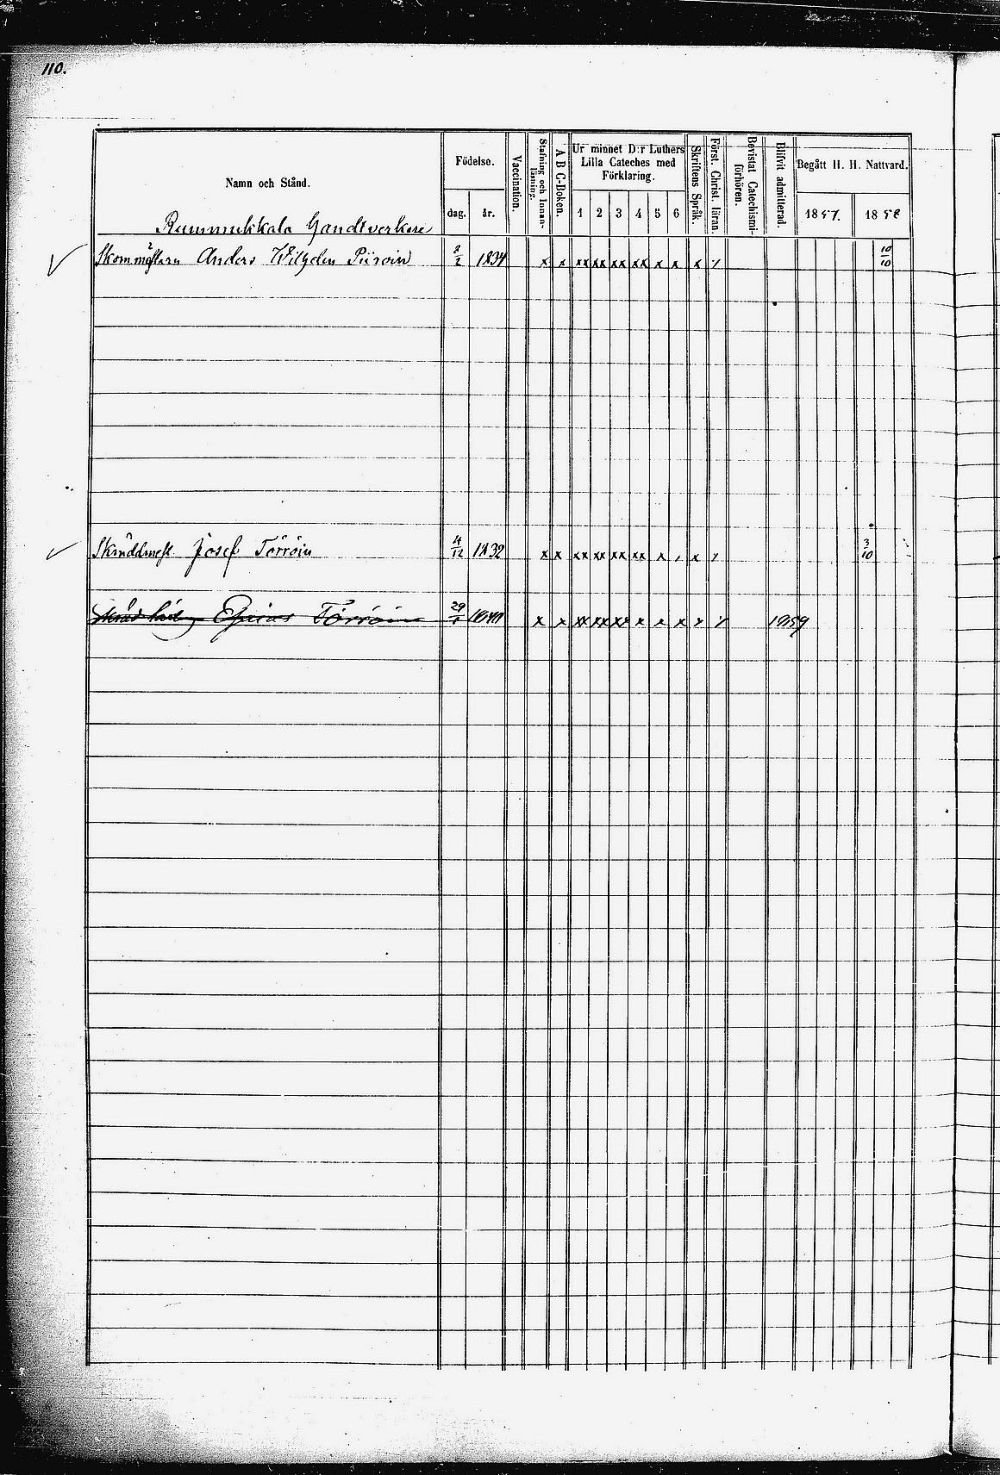 110.
Namn och Stånd.
Födelse.
dag. år.
Vaccination.
Stafning och Innan-
läsning.
A B C-Boken.
Ur minnet D:r Luthers
Lilla Cateches med
Förklaring.
1 2 3 4 5 6
Skriftens Språk.
Först. Christ. läran.
Bevistat Catechismi-
förhören.
Blifvit admitterad.
Begått H. H. Nattvard.
1857. 1858
Rummukkala Handtverkare
Anders Wilhelm Piiroin 2/2 1834 x x xx xx xx xx x x x 10/10
Josef Törröin 4/12 1832 x x xx xx xx xx x x 3/10
Törröin 29 x x xx xx xx x x x x 1859